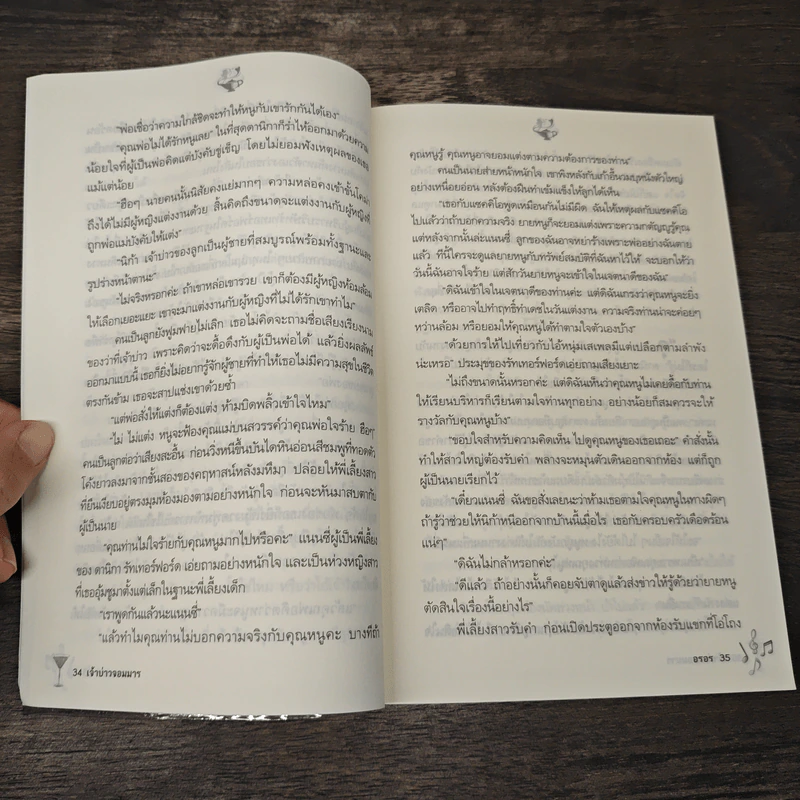 "พ่อเชื่อว่าความใกล้ชิดจะทำให้หนูกับเขารักกันได้เอง"
"คุณพ่อไม่ได้รักหนูเลย" ในที่สุดดานิกาก็ร่ำไห้ออกมาด้วยความ
น้อยใจที่ผู้เป็นพ่อคิดแต่บังคับขู่เข็ญ โดยไม่ยอมฟังเหตุผลของเธอ
แม้แต่น้อย
"ฮือๆ นายคนนั้นนิสัยคงแย่มากๆ ความหล่อคงเข้าขั้นโคม่า
ถึงได้ไม่มีผู้หญิงแต่งงานด้วย สิ้นคิดถึงขนาดจะแต่งงานกับผู้หญิงที่
ถูกพ่อแม่บังคับให้แต่ง"
"นิก้า เจ้าบ่าวของลูกเป็นผู้ชายที่สมบูรณ์พร้อมทั้งฐานะและ
รูปร่างหน้าตานะ"
"ไม่จริงหรอกค่ะ ถ้าเขาหล่อเขารวย เขาก็ต้องมีผู้หญิงห้อมล้อม
ให้เลือกเยอะแยะ เขาจะมาแต่งงานกับผู้หญิงที่ไม่ได้รักเขาทำไม"
คนเป็นลูกยังฟูมฟายไม่เลิก เธอไม่คิดจะถามชื่อเสียงเรียงนาม
ของว่าที่เจ้าบ่าว เพราะคิดว่าจะดื้อดึงกับผู้เป็นพ่อได้ แล้วยิ่งผลลัพธ์
ออกมาแบบนี้ เธอก็ยิ่งไม่อยากรู้จักผู้ชายที่ทำให้เธอไม่มีความสุขในชีวิต
ตรงกันข้าม เธอจะสาปแช่งเขาด้วยซ้ำ
"แต่พ่อสั่งให้แต่งก็ต้องแต่ง ห้ามบิดพลิ้วเข้าใจไหม"
"ไม่ ไม่แต่ง หนูจะฟ้องคุณแม่บนสวรรค์ว่าคุณพ่อใจร้าย ฮือๆ"
คนเป็นลูกต่อว่าเสียงสะอื้น ก่อนวิ่งหนีขึ้นบันไดหินอ่อนสีชมพูที่ทอดตัว
โค้งยาวลงมาจากชั้นสองของคฤหาสน์หลังมหึมา ปล่อยให้พี่เลี้ยงสาว
ที่ยืนเงียบอยู่ตรงมุมห้องมองตามอย่างหนักใจ ก่อนจะหันมาสบตากับ
ผู้เป็นนาย
"คุณท่านไม่ใจร้ายกับคุณหนูมากไปหรือคะ" แนนซี่ผู้เป็นพี่เลี้ยง
ของ ดานิกา รัทเทอร์ฟอร์ด เอ่ยถามอย่างหนักใจ และเป็นห่วงหญิงสาว
ที่เธออุ้มชูมาตั้งแต่เล็กในฐานะพี่เลี้ยงเด็ก
"เราพูดกันแล้วนะแนนซี่"
"แล้วทำไมคุณท่านไม่บอกความจริงกับคุณหนูคะ บางทีถ้า
34 เจ้าบ่าวจอมมาร
คุณหนูรู้ คุณหนูอาจยอมแต่งตามความต้องการของท่าน"
คนเป็นนายส่ายหน้าหนักใจ เขาพิงหลังกับเก้าอี้นวมบุหนังตัวใหญ่
อย่างเหนื่อยอ่อน หลังต้องฝืนทำเข้มแข็งให้ลูกได้เห็น
"เธอกับแซคคีโอพูดเหมือนกันไม่มีผิด ฉันให้เหตุผลกับแซคคีโอ
ไปแล้วว่าถ้าบอกความจริง ยายหนูก็จะยอมแต่งเพราะความกตัญญูรู้คุณ
แต่หลังจากนั้นล่ะแนนซี่ ลูกของฉันอาจหย่าร้างเพราะพ่ออย่างฉันตาย
แล้ว ทีนี้ใครจะดูแลยายหนูกับทรัพย์สมบัติที่ฉันหาไว้ให้ จะบอกให้ว่า
วันนี้ฉันอาจใจร้าย แต่สักวันยายหนูจะเข้าใจในเจตนาดีของฉัน"
"ดิฉันเข้าใจในเจตนาดีของท่านค่ะ แต่ดิฉันเกรงว่าคุณหนูจะยิ่ง
เตลิด หรืออาจไปทำฤทธิ์ทำเดชในวันแต่งงาน ความจริงท่านน่าจะค่อยๆ
หว่านล้อม หรือยอมให้คุณหนูได้ทำตามใจตัวเองบ้าง"
"ด้วยการให้ไปเที่ยวกับไอ้หนุ่มเสเพลมีแต่เปลือกตามลำพัง
น่ะเหรอ" ประมุขของรัทเทอร์ฟอร์ดเอ่ยถามเสียงเยาะ
"ไม่ถึงขนาดนั้นหรอกค่ะ แต่ดิฉันเห็นว่าคุณหนูไม่เคยดื้อกับท่าน
ให้เรียนบริหารก็เรียนตามใจท่านทุกอย่าง อย่างน้อยก็สมควรจะให้
รางวัลกับคุณหนูบ้าง"
"ขอบใจสำหรับความคิดเห็น ไปดูคุณหนูของเธอเถอะ" คำสั่งนั้น
ทำให้สาวใหญ่ต้องรับคำ พลางจะหมุนตัวเดินออกจากห้อง แต่ก็ถูก
ผู้เป็นนายเรียกไว้
"เดี๋ยวแนนซี่ ฉันขอสั่งเลยนะว่าห้ามเธอตามใจคุณหนูในทางผิดๆ
ถ้ารู้ว่าช่วยให้นิก้าหนีออกจากบ้านนี้เมื่อไร เธอกับครอบครัวเดือดร้อน
แน่ๆ"
"ดิฉันไม่กล้าหรอกค่ะ"
"ดีแล้ว ถ้าอย่างนั้นก็คอยจับตาดูแล้วส่งข่าวให้รู้ด้วยว่ายายหนู
ตัดสินใจเรื่องนี้อย่างไร"
พี่เลี้ยงสาวรับคำ ก่อนเปิดประตูออกจากห้องรับแขกที่โอ่โถง
อรอร 35